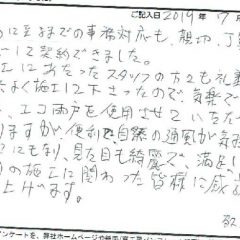 ご記入日 2019年 7月
に至るまでの事務対応も、親切、丁
して契約できました。
工にあたったスタッフの方々も礼
よく施工に下さったので気楽で
、エコ雨戸を使用させていただ
りますが、便利で自然の通風が気
にもなり、見た目も綺麗で、満足し
の施工に関わった皆様に感
上げます。
アンケートを、弊社ホームページや